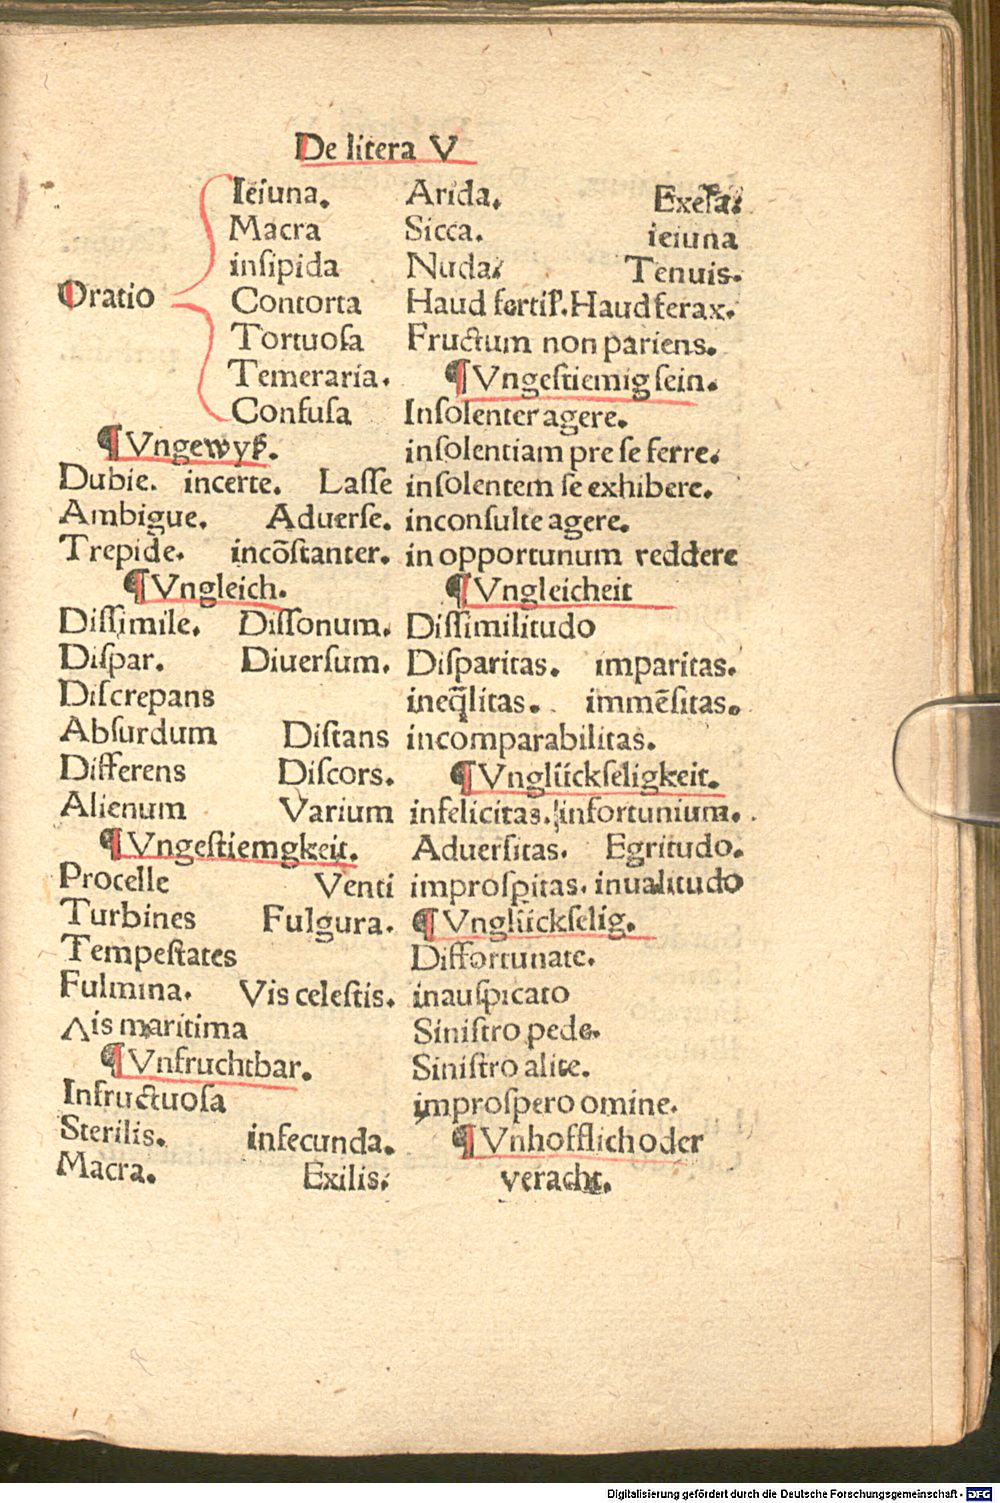 De litera V
Ieiuna.
Macra
insipida
Oratio Contorta
Tortuosa
Temeraria.
Confusa
¶ Vngewyſz.
Dubie. incerte. Laſſe
Ambigue. Aduerſe.
Trepide. incōſtanter.
¶ Vngleich.
Diſſimile. Diſſonum.
Diſpar. Diuerſum.
Diſcrepans
Abſurdum Diſtans
Differens Diſcors.
Alienum Varium
¶ Vngeſtiemgkeit.
Procelle Venti
Turbines Fulgura.
Tempeſtates
Fulmina. Vis celeſtis.
Vis maritima
¶ Vnfruchtbar.
Infructuoſa
Sterilis. infecunda.
Macra. Exilis.
Arida. Exeſa.
Sicca. ieiuna
Nuda. Tenuis.
Haud fertiſ. Haud ferax.
Fructum non pariens.
¶ Vngeſtiemig ſein.
Inſolenter agere.
inſolentiam pre ſe ferre.
inſolentem ſe exhibere.
inconſulte agere.
in opportunum reddere
¶ Vngleicheit
Diſſimilitudo
Diſparitas. imparitas.
ineq̄litas. immēſitas.
incomparabilitas.
¶ Vnglückſeligkeit.
infelicitas. infortunium.
Aduerſitas. Egritudo.
improſpitas. inualitudo
¶ Vnglückſelig.
Diffortunate.
inauſpicato
Siniſtro pede.
Siniſtro alite.
improſpero omine.
¶ Vnhofflich oder
veracht.
Digitalisierung gefördert durch die Deutsche Forschungsgemeinschaft - DFG